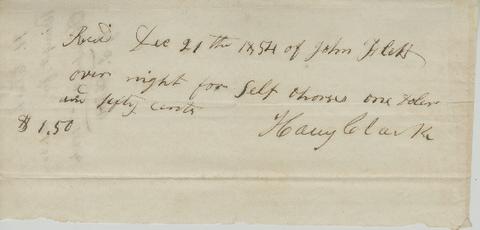 Recd Dec 21th 1854 of John Flett
over night for Self & horses one doler
and fifty cents
$1.50
Harry Clarke